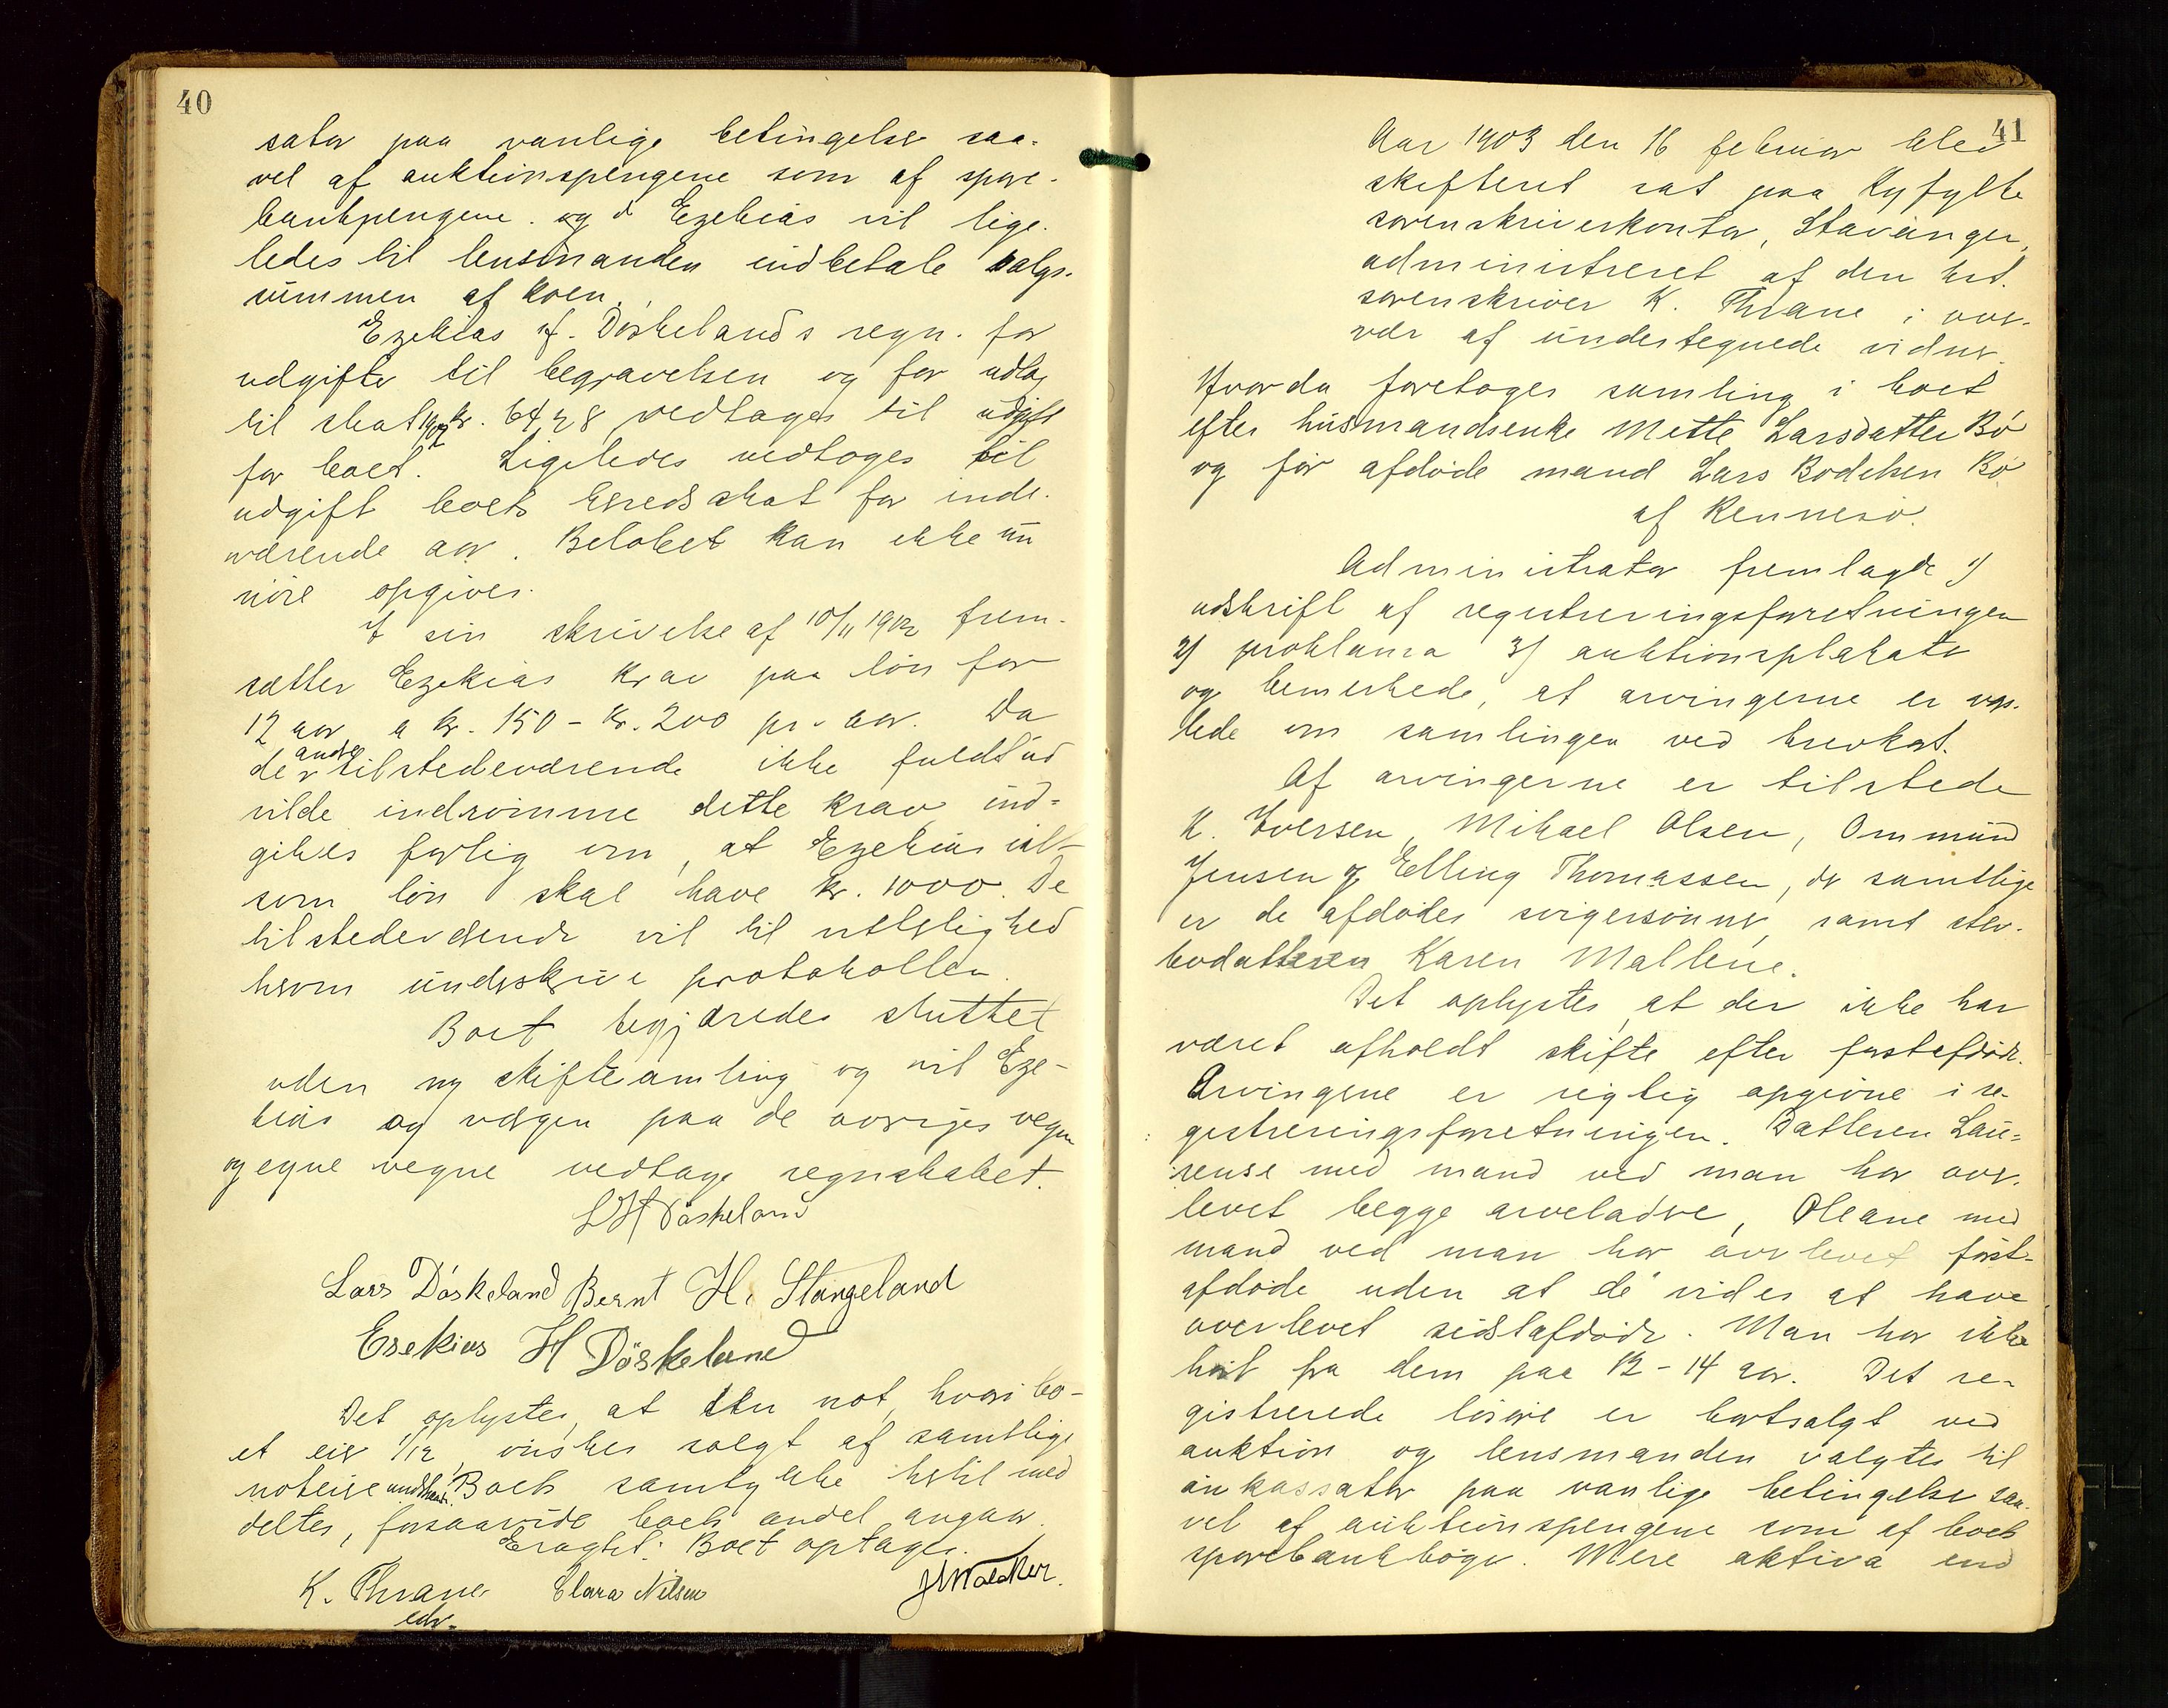 40
sator paa vanlige betingelser saa-
vel af auktionspengene som af spare-
bankpengene. og Ezekias vil lige-
ledes til lensmanden indbetale salgs-
summen af koen.
Ezekias H. Døskelands regn. for
udgifter til begravelsen og for udlæg
til skat 1902 kr. 64,28 vedtages til udgift
for boet. Ligeledes vedtoges til
udgift boets herredsskat for inde-
værende aar. Beløbet kan ikke nu
nøie opgives.
I sin skrivelse af 10/11 1902 frem-
sætter Ezekias krav paa løn for
12 aar a kr. 150 - kr. 200 pr. aar. Da
de andre tilstedeværende ikke fuldt ud
vilde indrømme dette krav ind-
gikes forlig om, at Ezekias ialt
som løn skal have kr. 1000. De
tilstedeværende vil til vitterlighed
herom underskrive protokollen.
Boet begjæredes sluttet
uden ny skiftesamling og vil Eze-
kias og værgen paa de øvriges vegne
og egne vegne vedtage regnskabet.
L H Døskeland
Lars Döskeland Bernt H. Stangeland
Esekias H Döskeland
Det oplystes, at den not, hvori bo-
et eier 1/12, ønskes solgt af samtlige
noteiere underhaand. Boets samtykke hertil med
deltes, forsaavidt boets andel angaar.
Eragtet: Boet optages.
K. Thrane Clara Nilsen
edv.
41
Aar 1903 den 16 februar blev
skifteret sat paa Ryfylke
sorenskriverkontor, Stavanger,
administreret af den kst.
sorenskriver K. Thrane i over-
vær af undertegnede vidner.
Hvorda foretoges samling i boet
efter husmandsenke Mette Larsdatter Bø
og før afdøde mand Lars Bodelsen Bø
af Rennesø.
Administrator fremlagde 1)
udskrift af registreringsforetningen
2) proklama 3) auktionsplakater
og bemerkede, at arvingerne er vars-
lede om samlingen ved brevkort.
Af arvingerne er tilstede
K. Iversen, Mikael Olsen, Ommund
Jensen og Elling Thomassen, der samtlige
er de afdødes svigersønner, samt ster-
bodatteren Karen Mallene.
Det oplystes, at der ikke har
været afholdt skifte efter førstafdøde.
Arvingene er rigtig opgivne i re-
gistreringsforetningen. Datteren Lau-
rense med mand ved man har over-
levet begge arveladere, Oleane med
mand ved man har overlevet først-
afdøde uden at de vides at have
overlevet sidstafdøde. Man har ikke
hørt fra dem paa 12 - 14 aar. Det re-
gistrerede løsøre er bortsolgt ved
auktion og lensmanden valgtes til
inkassator paa vanlige betingelser saa-
vel af auktionspengene som af boets
sparebankbøger. Mere aktiva end